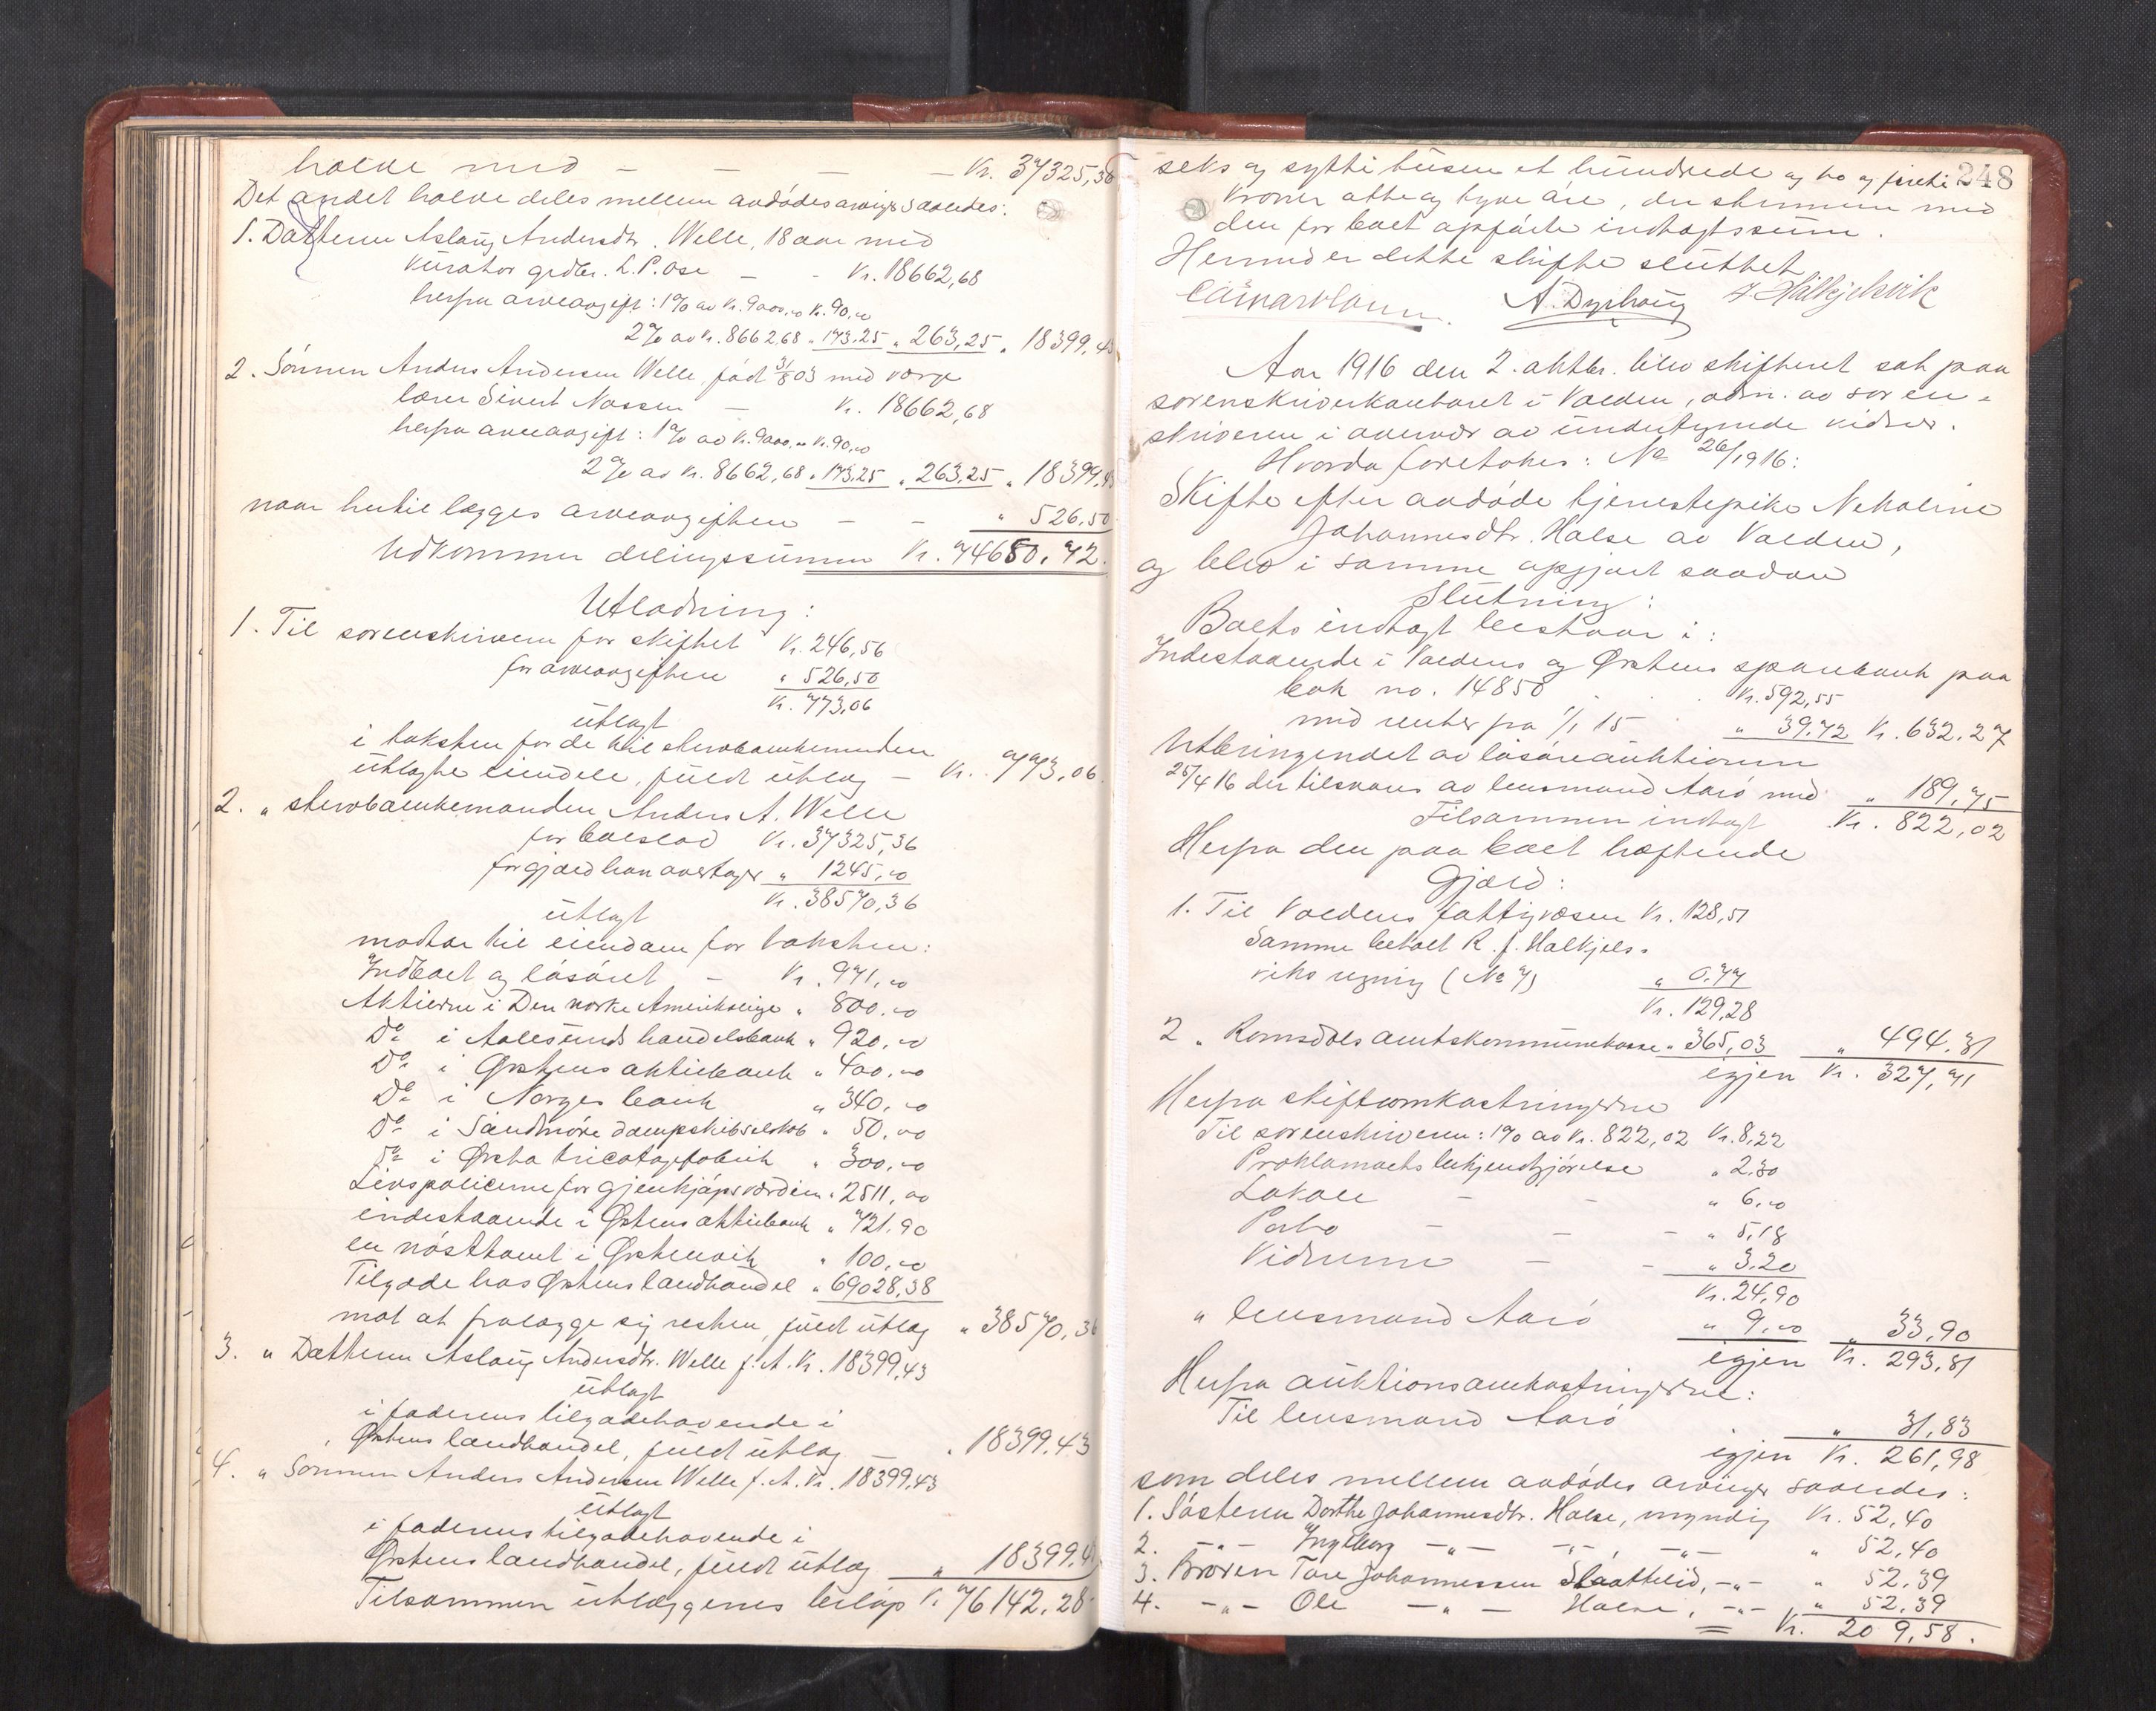 halve med — — — — Kr. 37325,36
Det andet halve deles mellem avdødes arvinger saaledes:
1. Datteren Aslaug Andersdtr. Welle, 18 aar med
kurator grdbr. L. P. Ose — - Kr. 18662,68
herfra arveavgift: 1% av Kr. 9000,00 Kr. 90,00
2% av Kr. 8662,68 „ 173,25 „ 263,25 „ 18399,43
2. Sønnen Anders Andersen Welle, født 31/8 03 med verge
lærer Sivert Nossen — Kr. 18662,68
herfra arveavgift: 1% av Kr. 9000,00 Kr. 90,00
2% av Kr. 8662,68 „ 173,25 „ 263,25 „ 18399,43
naar hertil lægges arveavgiften — - „ 526,50
Utkommer delingssummen Kr. 74650,72.
Utlodning:
1. Til sorenskriveren for skiftet Kr. 246,56
for arveavgiften „ 526,50
Kr. 773,06
utlagt
i taksten for de til stervboenkemanden
utlagte eiendele, fuldt utlæg — Kr. 773,06
2. „ stervboenkemanden Anders A. Welle
for boeslod Kr. 37325,36
for gjæld han overtager „ 1245,00
Kr. 38570,36
utlagt
mottar til eiendom for taksten:
Indboet og løsøret — Kr. 971,00
Aktierne i Den norske Amerikalinje „ 800,00
Do i Aalesunds handelsbank „ 920,00
Do i Ørstens aktiebank „ 400,00
Do i Norges bank „ 340,00
Do i Søndmøre dampskibsselskab „ 50,00
Do i Ørsta tricotagefabrik „ 300,00
Livspolicerne for gjenkjøpsværdien „ 2511,00
indestaaende i Ørstens aktiebank „ 721,90
en nøsttomt i Ørstenvik „ 100,00
Tilgode hos Ørstens landhandel „ 69028,38
mot at fralægge sig resten, fuldt utlæg „ 38570,36
3. „ Datteren Aslaug Andersdtr. Welle f. A. Kr. 18399,43
utlagt
i faderens tilgodehavende i
Ørstens landhandel, fuldt utlæg — „ 18399,43
4. „ Sønnen Anders Andersen Welle f. A. Kr. 18399,43
utlagt
i faderens tilgodehavende i
Ørstens landhandel, fuldt utlæg „ 18399,43
Tilsammen utlæggenes beløp Kr. 76142,28
248
seks og sytti tusen et hundrede og to og fireti
kroner otte og tyve øre, der stemmer med
den for boet opførte indtægtssum.
Hermed er dette skifte sluttet
A. Dyrhaug J Halkjelsvik
Aar 1916 den 2. oktbr. blev skifteret sat paa
sorenskriverkontoret i Volden, adm. av soren-
skriveren i overvær av undertegnede vidner.
Hvorda foretokes: No 26/1916:
Skifte efter avdøde tjenestepike Nekoline
Johannesdtr. Halse av Volden,
og blev i samme opgjort saadan
Slutning:
Boets indtægt bestaar i:
Indestaaende i Voldens og Ørstens sparebank paa
bok no. 14850 . . Kr. 592,55
med renter fra 1/1 15 „ 39,72 Kr. 632,27
Utbringendet av løsøreauktionen
25/4 16 der tilsvares av lensmand Aarø med „ 189,75
Tilsammen indtægt Kr. 822,02
Herfra den paa boet hæftende
Gjæld:
1. Til Voldens fattigvæsen Kr. 128,51
Samme betalt R. J. Halkjels-
viks regning (No 7) „ 0,77
Kr. 129,28
2 „ Romsdals amtskommunekasse „ 365,03 „ 494,31
igjen Kr. 327,71
Herfra skifteomkostningerne
Til sorenskriveren: 1% av Kr. 822,02 Kr. 8,22
Proklamaets bekjendtgjørelse „ 2,30
Lokale - - „ 6,00
Porto - - - „ 5,18
Vidnerne — - „ 3,20
Kr. 24,90
„ lensmand Aarø „ 9,00 „ 33,90
igjen Kr. 293,81
Herfra auktionsomkostningerne:
Til lensmand Aarø „ 31,83
igjen Kr. 261,98
som deles mellem avdødes arvinger saaledes:
1. Søsteren Dorthe Johannesdtr. Halse, myndig Kr. 52,40
2. -„- Ingeborg -„- -„-, -„- „ 52,40
3. Broren Tore Johannessen Slaattelid, -„- „ 52,39
4. -„- Ole -„- Halse, -„- „ 52,39
= Kr. 209,58.